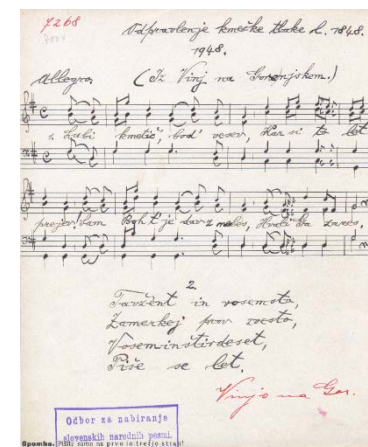 7268
Odpravlenje kmečke tlake l. 1848.
1948.
Allegro. (Iz Vinj na Gorenjskem.)
Lubi kmetič, bod' vesev, Kar si te let
prejev! Vam Bogh t' je dav z nebes,
2.
Tavžent in vosemsto,
Zamerkej prov zvesto,
Voseminštirdeset,
Piše se let.
Vinje na Gor.
Odbor za nabiranje
slovenskih narodnih pesmi.
Opomba. Piši samo na prvo in tretjo stran!